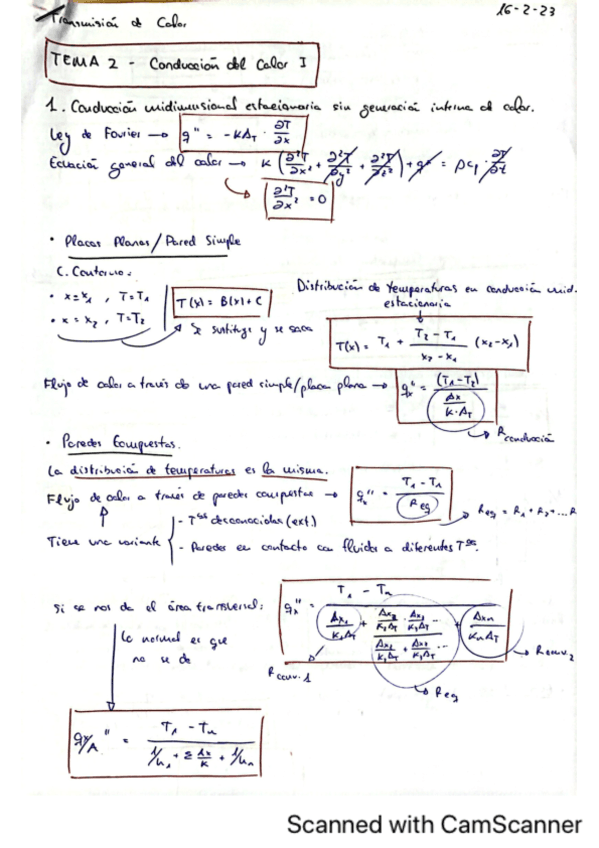 16-2-23
Transmisión de Calor
TEMA 2 - Conducción del Calor I
1. Conducción unidimensional estacionaria sin generación interna de calor.
Ley de Fourier → q" = -KA_T · ∂T/∂x
Ecuación general del calor → K (∂²T/∂x² + ∂²T/∂y² + ∂²T/∂z²) + q* = ρc_p · ∂T/∂t
∂²T/∂x² = 0
• Placas Planas / Pared Simple
C. Contorno:
• x = x₁ , T = T₁
• x = x₂ , T = T₂
T(x) = B(x) + C
Se sustituye y se saca
Distribución de temperaturas en conducción unid. estacionaria
T(x) = T₁ + (T₂ - T₁)/(x₂ - x₁) (x₂ - x₁)
Flujo de calor a través de una pared simple/placa plana → q"ₓ = (T₁ - T₂) / (Δx / K·A_T)
R conducción
• Paredes Compuestas.
La distribución de temperaturas es la misma.
Flujo de calor a través de paredes compuestas → qₓ" = (T₁ - T₁) / Req
Req = R₁ + R₂ + ... R
Tiene una variante { - Tªs desconocidas (ext)
- Paredes en contacto con fluidos a diferentes Tªs.
Si se nos da el área transversal:
qₓ" = (T₁ - Tₙ) / (Δx₁/K₁A_T + (Δx₂/K₂A_T · Δx₃/K₃A_T ...)/(Δx₂/K₂A_T + Δx₃/K₃A_T ...) + Δxₙ/KₙA_T)
Lo normal es que
no se de
R conv. 1
Req
R conv. 2
qx/A" = (T₁ - Tₙ) / (1/h₁ + Σ Δx/K + 1/hₙ)
Scanned with CamScanner